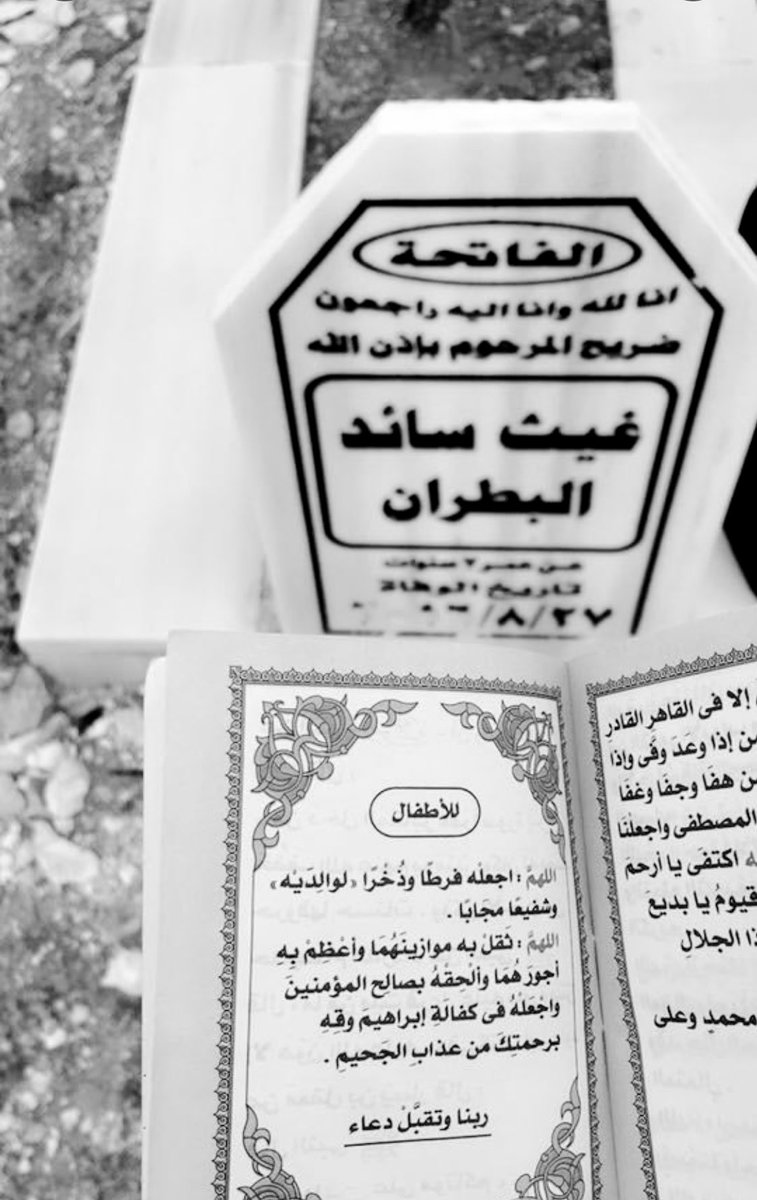 الفاتحة
انا لله وانا اليه راجعون
ضريح المرحوم بإذن الله
غيث سائد
البطران
عن عمر ٢ سنوات
تاريخ الوفاة
١٦/٨/٢٧
للأطفال
اللهمَّ : اجعله فرطًا وذُخرًا «لوالِدَيْه»
وشفيعًا مجَابًا .
اللهمَّ : ثَقلْ به موازينَهُمَا وأعْظِمْ بِهِ
أجورَهُمَا وألْحقْهُ بصالِح المؤمنينَ
واجْعَلْهُ فى كفالَةِ إبراهيمَ وقِهِ
برحمتِكَ من عذابِ الجَحيمِ .
ربنا وتقبَّلْ دعاء
إلا فى القاهرِ القادرِ
إذا وعَدَ وفَّى وإذا
هفَا وجفَا وغفَا
المصطفى واجعلْنَا
اكتفَى يا أرحمَ
قيومُ يا بديعَ
ذا الجلالِ
محمدٍ وعلى